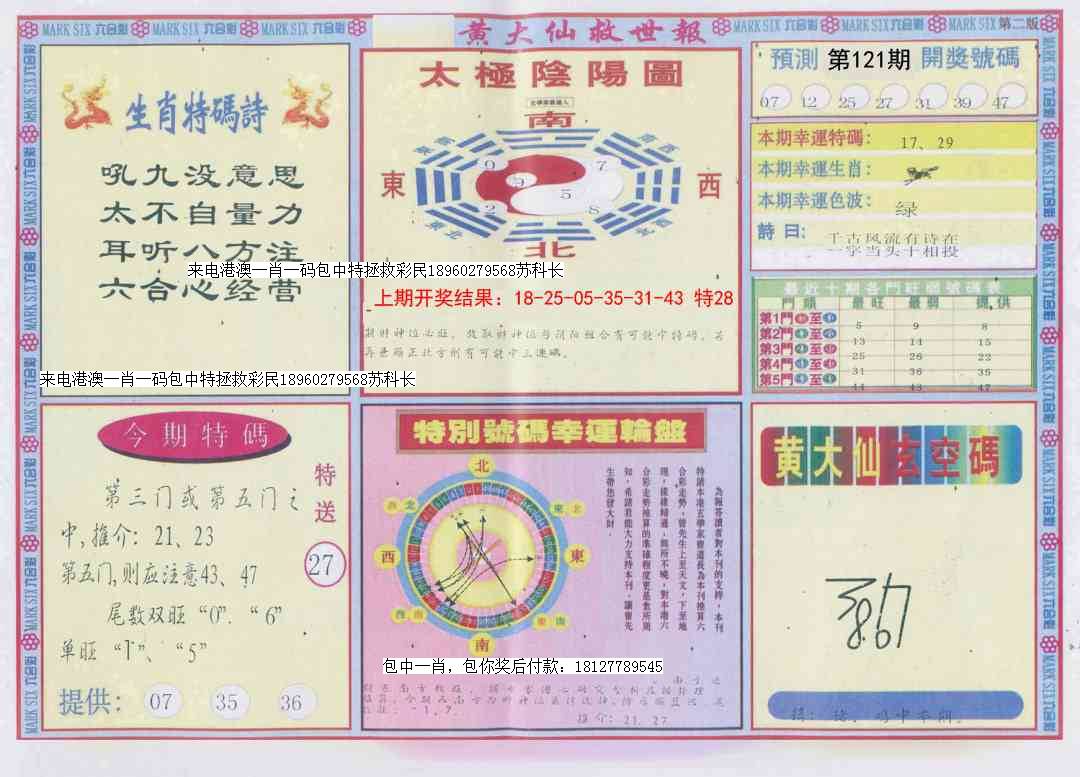 MARK SIX 六合彩 MARK SIX 六合彩 MARK SIX 六合彩
黄大仙救世報
MARK SIX 六合彩 MARK SIX 六合彩 MARK SIX 第二版
生肖特碼詩
吼九没意思
太不自量力
耳听八方注
六合心经营
来电港澳一肖一码包中特拯救彩民18960279568苏科长
来电港澳一肖一码包中特拯救彩民18960279568苏科长
太極陰陽圖
南
東南
西南
東
西
0 7
5
2 8
東北
西北
北
上期开奖结果：18-25-05-35-31-43 特28
預測 第121期 開獎號碼
07 12 25 27 31 39 47
本期幸運特碼： 17、29
本期幸運生肖：
本期幸運色波： 绿
詩曰： 千古风流有诗在
一字当头十相投
最近十期各門旺弱號碼表
門類 最旺 最弱 提供
第1門 至 5 9 8
第2門 至 13 14 15
第3門 至 25 26 23
第4門 至 31 36 35
第5門 至 44 43 47
今期特碼
第三门或第五门之
中,推介：21、23
第五门,则应注意43、47
尾数双旺“0”、“6”
单旺“1”、“5”
提供： 07 35 36
特送
27
特別號碼幸運輪盤
北
西北
東北
西
東
西南
東南
南
為報答讀者對本刊的支持，本刊
特請本港玄學家曾道長為本刊推算六
合彩走勢，曾先生上至天文，下至地
理，樣樣精通，無所不曉，對本港六
合彩走勢推算的準確程度更是衆所周
知，希諸君能大力支持本刊，讓曾先
生帶您發大財．
包中一肖，包你奖后付款：18127789545
推介：21、27
黄大仙玄空碼